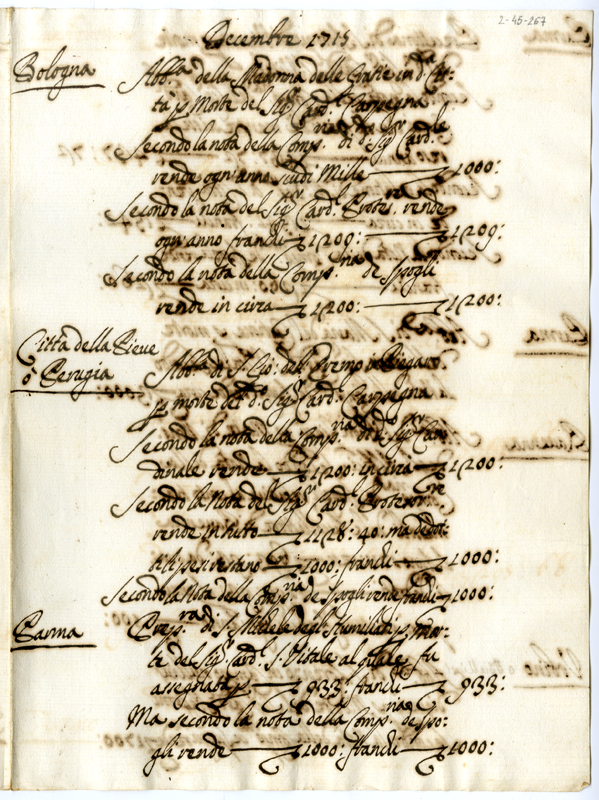 2-45-267
Decembre 1715
Bologna
Abb.ª della Madonna delle Gratie in d.ª Cit:
tà p morte del Sig.r Card.l Carpegna
Secondo la nota della Comp.ria di d.º Sig.r Card.le
rende ogn'anno scudi Mille 1000:
Secondo la nota del Sig.r Card.l Protet.re rende
ogn'anno franchi 1209: 1209:
Secondo la nota della Comp.ria de Spogli
rende in circa 1200: 1200:
Città della Pieve
ò Perugia
Abb.ª di S. Gio: dell'Eremo in Piegaro
p morte del d.º Sig.r Card.l Carpegna
Secondo la nota della Comp.ria di d.º Sig.r Car:
dinale rende 1200: in circa 1200:
Secondo la Nota del Sig.r Card.l Protettor.re
rende in tutto 1128: 40: ma dedot:
ti li pesi restano 1000: franchi 1000:
Secondo la Nota della Comp.ria de Spogli rende franchi 1000:
Parma
Prep.ra di S. Michele degli Humiliati p mor:
te del Sig.r Card.l S. Vitale al quale fu
assegnata p 933: franchi 933:
Ma secondo la nota della Comp.ria de Spo:
gli rende 1000: franchi 1000: